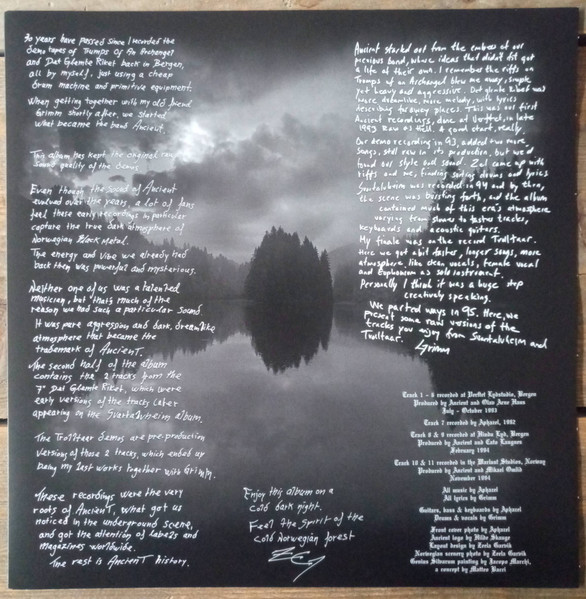 30 years have passed since I recorded the
demo tapes of Trumps Of An Archangel
and Det Glemte Riket back in Bergen,
all by myself, just using a cheap
drum machine and primitive equipment.
When getting together with my old friend
Grimm shortly after, we started
what became the band Ancient.
This album has kept the original raw
sound quality of the demos
Even though the sound of Ancient
evolved over the years, a lot of fans
feel these early recordings in particular
capture the true dark atmosphere of
Norwegian Black Metal.
The energy and vibe we already had
back then was powerful and mysterious.
Neither one of us was a talented
musician, but that's much of the
reason we had such a particular sound
It was pure aggression and dark, dreamlike
atmosphere that became the
trademark of Ancient.
The second half of the album
contains the 2 tracks from the
7" Det Glemte Riket, which were
early versions of the tracks later
appearing on the Svartalvheim album.
The Trolltaar demos are pre-production
versions of those 2 tracks, which ended up
being my last works together with Grimm.
These recordings were the very
roots of Ancient, what got us
noticed in the underground scene,
and got the attention of labels and
magazines worldwide.
The rest is Ancient history.
Enjoy this album on a
cold dark night.
Feel the spirit of the
cold Norwegian forest
Ancient started out from the embers of our
previous band, whose ideas that didn't fit got
a life of their own. I remember the riffs on
Trumps of an Archangel blew me away, simple
yet heavy and aggressive. Det glemte Riket was
more dreamlike, more melody, with lyrics
describing far away places. This was our first
Ancient recordings, done at in late
1993 Raw as Hell. A good start, really.
Our demo recording in 93, added two more
songs, still raw in its production, but we'd
found our style and sound. Zel came up with
riffs and me, finding suiting drums and lyrics
Svartalvheim was recorded in 94 and by then,
the scene was bursting forth, and the album
contained much of this era's atmosphere
varying from slower to faster tracks,
keyboards and acoustic guitars.
My finale was on the record Trolltaar.
Here we got a bit faster, longer songs, more
atmosphere like clean vocals, female vocal
and Euphonium as solo instrument.
Personally I think it was a huge step
creatively speaking.
We parted ways in 95. Here, we
present some raw versions of the
tracks you enjoy from Svartalvheim and
Trolltaar.
Grimm
Track 1 - 6 recorded at Perfect Lydstudio, Bergen
Produced by Ancient and Olav Arne Haus
July - October 1993
Track 7 recorded by Aphazel, 1992
Track 8 & 9 recorded at Hindu Lyd, Bergen
Produced by Ancient and Cato Langnes
February 1994
Track 10 & 11 recorded in the Warlout Studios, Norway
Produced by Ancient and Mikael Omlid
November 1994
All music by Aphazel
All lyrics by Grimm
Guitars, bass & keyboards by Aphazel
Drums & vocals by Grimm
Front cover photo by Aphazel
Ancient logo by Hilde Skauge
Layout design by Zeela Garvik
Norwegian scenery photo by Zeela Garvik
Genius Silvarum painting by Jacopo Marchi,
a concept by Matteo Bacci